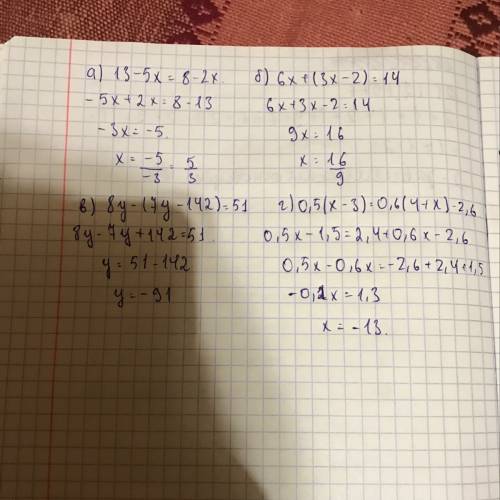 а) 13-5x=8-2x
-5x+2x=8-13
-3x=-5.
x=-5/-3=5/3
б) 6x+(3x-2)=14
6x+3x-2=14
9x=16
x=16/9
в) 8y-(7y-142)=51
8y-7y+142=51
y=51-142
y=-91
г) 0,5(x-3)=0,6(4+x)-2,6
0,5x-1,5=2,4+0,6x-2,6
0,5x-0,6x=-2,6+2,4+1,5
-0,1x=1,3
x=-13.